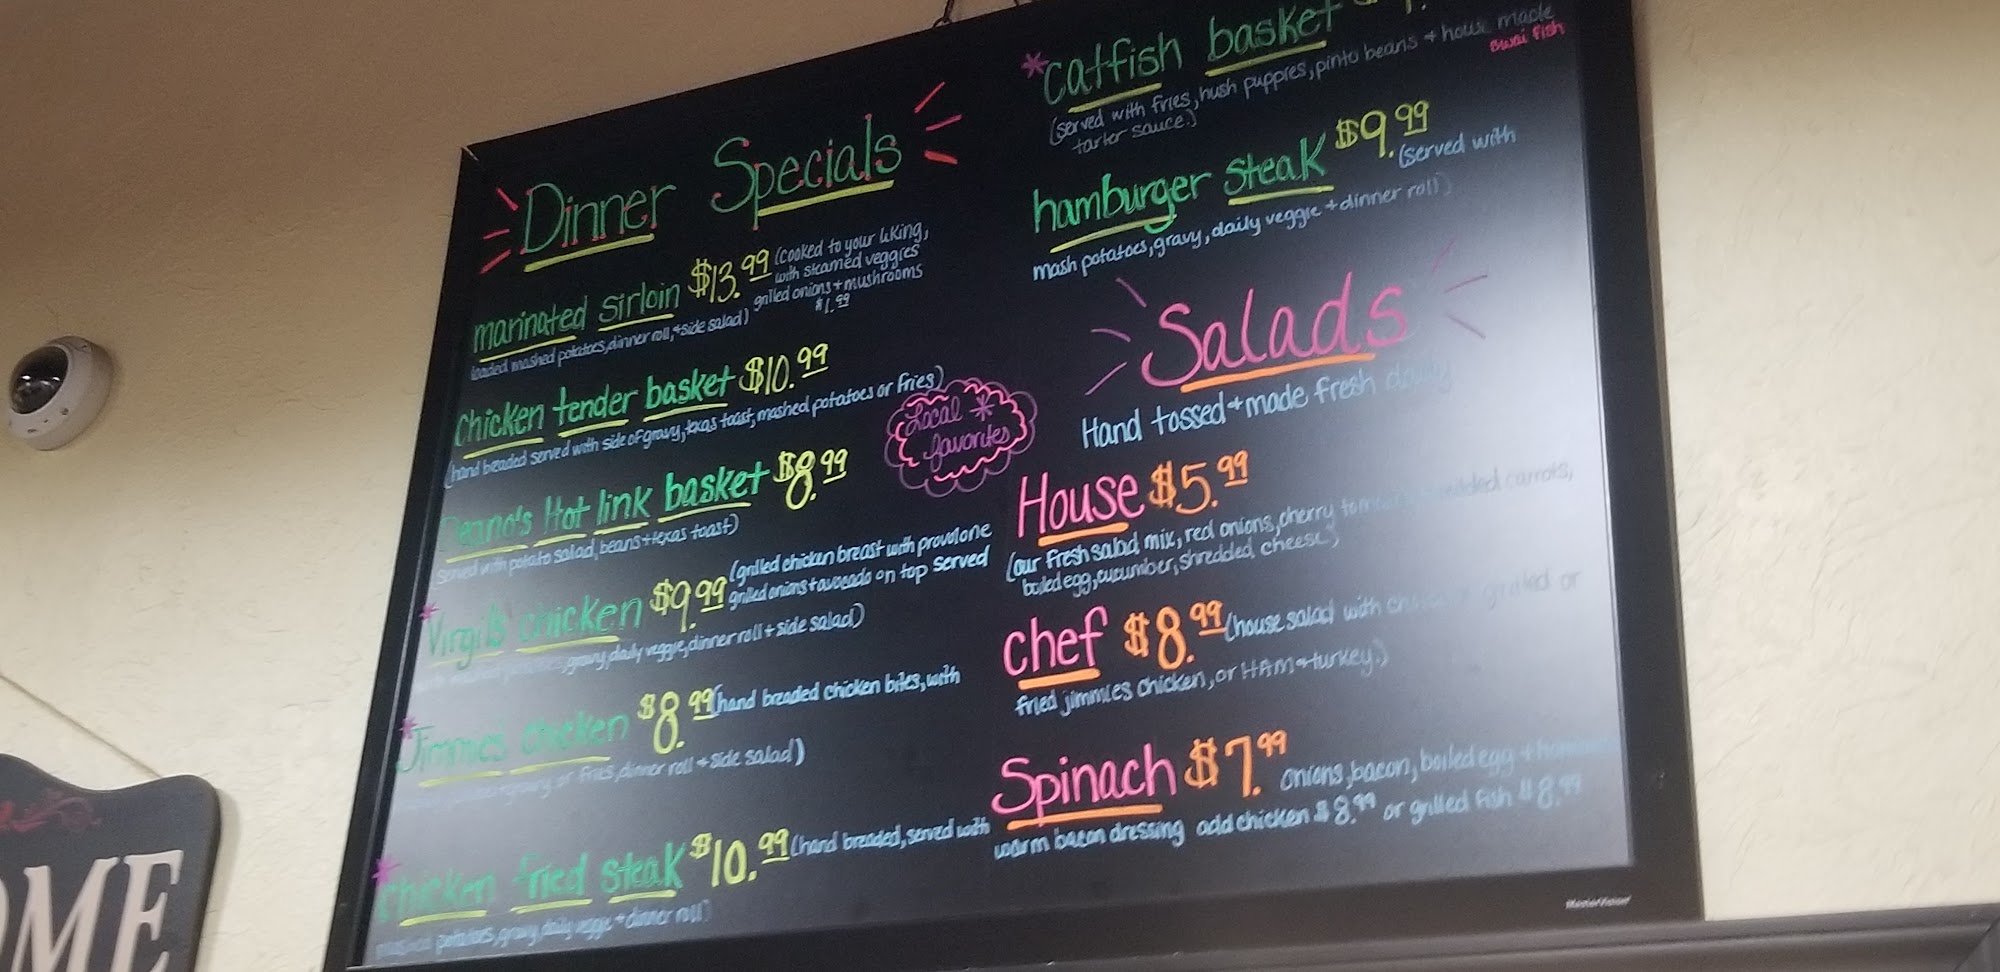 Dinner Specials
marinated sirloin $13.99 (cooked to your liking,
with steamed veggies
loaded mashed potatoes, dinner roll, + side salad) grilled onions + mushrooms
$1.99
chicken tender basket $10.99
(hand breaded served with side of gravy, texas toast, mashed potatoes or fries)
Local *
favorites
Hot link basket $8.99
served with potato salad, beans + texas toast)
*Virgil's chicken $9.99 (grilled chicken breast with provolone
grilled onions + avocado on top served
gravy, daily veggie, dinner roll + side salad)
*Jimmie's chicken $8.99 (hand breaded chicken bites, with
gravy or fries, dinner roll + side salad)
*chicken fried steak $10.99 (hand breaded, served with
mashed potatoes, gravy, daily veggie + dinner roll)
*catfish basket
(served with fries, hush puppies, pinto beans + house made
tarter sauce.)
Swai fish
hamburger steak $9.99 (served with
mash potatoes, gravy, daily veggie + dinner roll)
Salads
Hand tossed + made fresh daily
House $5.99
(our fresh salad mix, red onions, cherry carrots,
boiled egg, cucumber, shredded cheese)
chef $8.99 (house salad with grilled or
fried jimmies chicken, or HAM + turkey.)
Spinach $7.99 onions, bacon, boiled egg +
warm bacon dressing add chicken $8.99 or grilled fish $8.99
OME